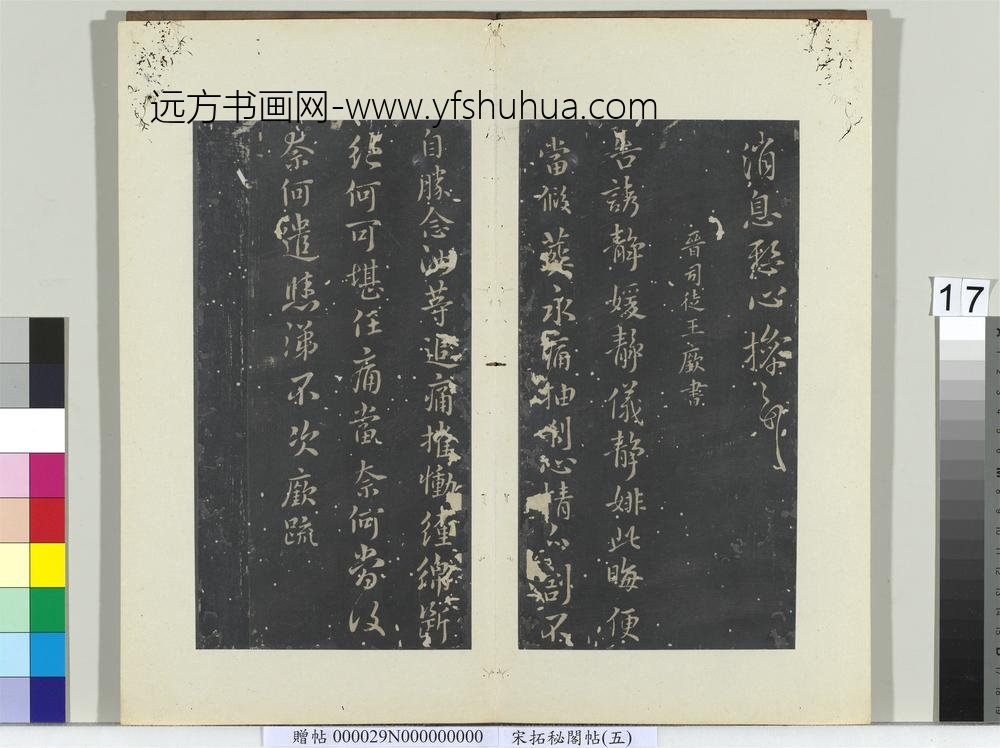 远方书画网-www.yfshuhua.com
消息愁心操
晉司徒王廞書
吾諸靜媛靜儀靜姚此晦便
當假葬永痛抽剝心情分割不
自勝念汝等追痛摧慟纏綿斷
絕何可堪任痛當奈何當復
奈何遣悲涕不次廞疏
17
贈帖 000029N000000000 宋拓秘閣帖(五)